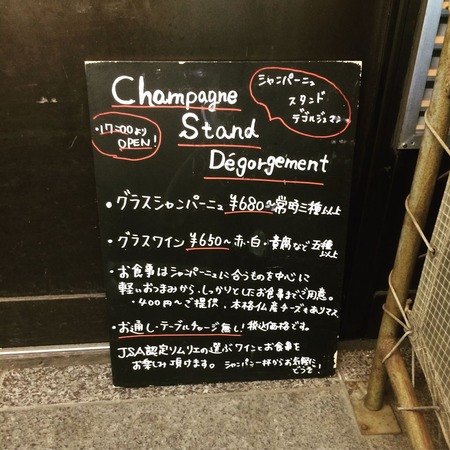 Champagne
Stand
Dégorgement
シャンパーニュ
スタンド
デゴルジュマン
・17:00より
OPEN!
・グラスシャンパーニュ ¥680〜常時三種以上
・グラスワイン ¥650〜赤・白・貴腐など五種以上
・お食事はシャンパーニュに合うものを中心に
軽いおつまみから、しっかりとしたお食事までご用意。
・400円〜ご提供、本格仏産チーズもありマス。
・お通し・テーブルチャージ無し!税込価格です。
JSA認定ソムリエの選ぶワインとお食事を
お楽しみ頂けます。シャンパン一杯からお気軽に
どうぞ!